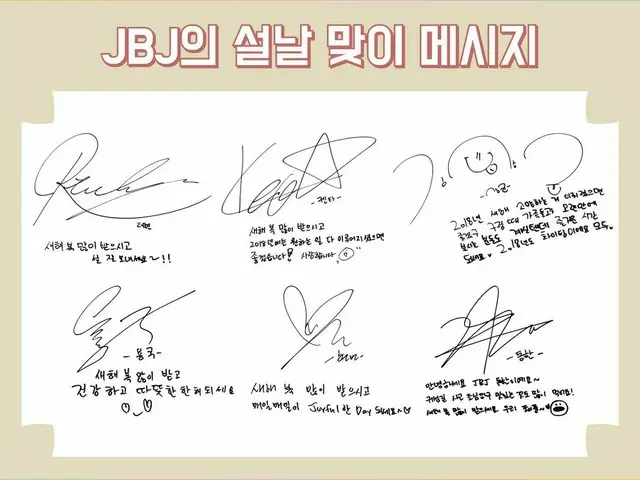 JBJ의 설날 맞이 메시지
태현
새해 복 많이 받으시고
설 잘 보내세요~!!
-켄타-
새해 복 많이 받으시고
2018년에는 원하는 일 다 이루어지셨으면
좋겠습니다! 사랑합니다
2018년 새해 소망하는 거 이뤄졌으면
좋겠구 구정 때 가족들과 오랜만에
보시는 분들도 계실텐데 즐거운 시간
되세요 2018년도 화이팅이에요 모두
-용국-
새해 복 많이 받고
건강하고 따뜻한 한해 되세요
새해 복 많이 받으시고
매일매일이 Joyful한 Day 되세요~
-동한-
안녕하세요 JBJ 동한이에요~
귀성길 사고 조심하구 맛있는 것도 많이 먹어요!
새해 복 많이 받으세요 우리